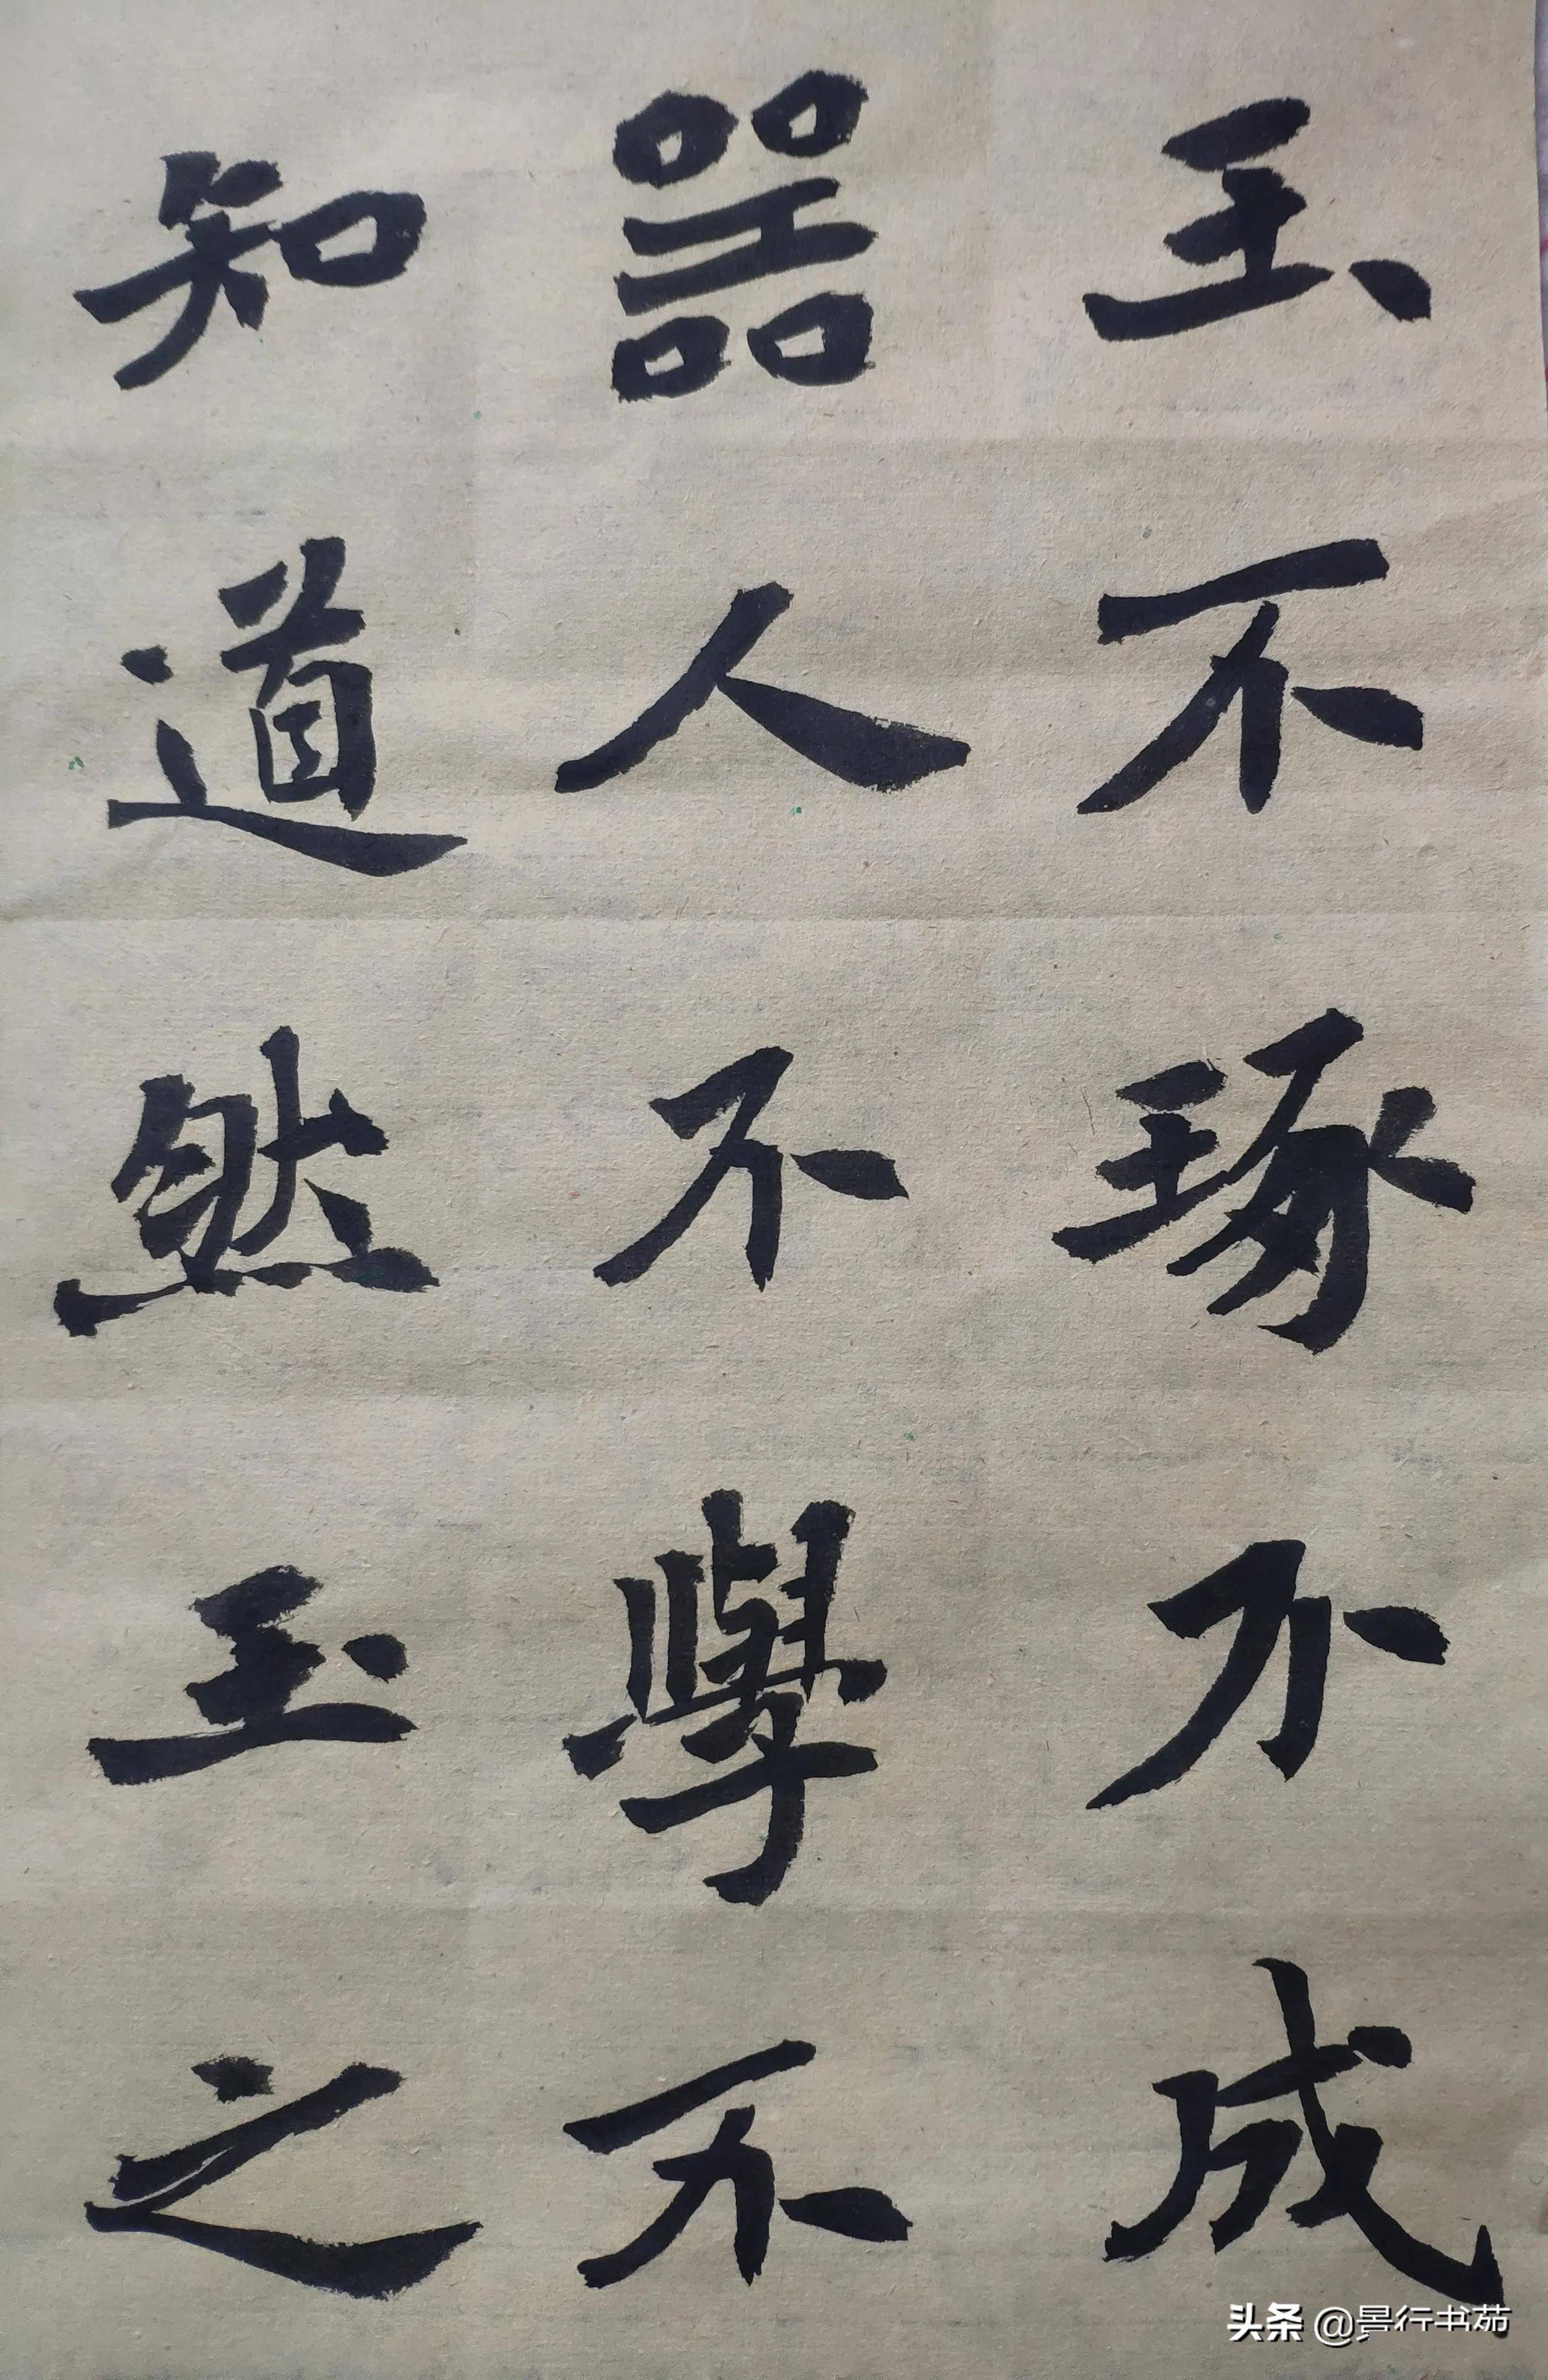 玉不琢不成
器人不學不
知道然玉之
头条 @景行书苑